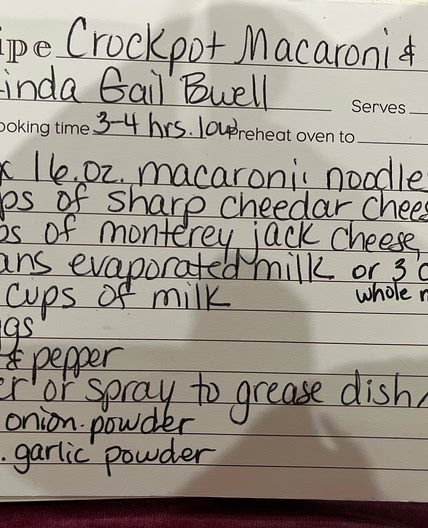 ipe Crockpot Macaroni &
inda Gail Buell
Serves
ooking time 3-4 hrs. low Preheat oven to
x 16.oz. macaroni noodle
ps of sharp cheedar chees
ps of monterey jack cheese
ans evaporated milk or 3 c
cups of milk whole m
ggs
& pepper
er or spray to grease dish/
onion powder
. garlic powder